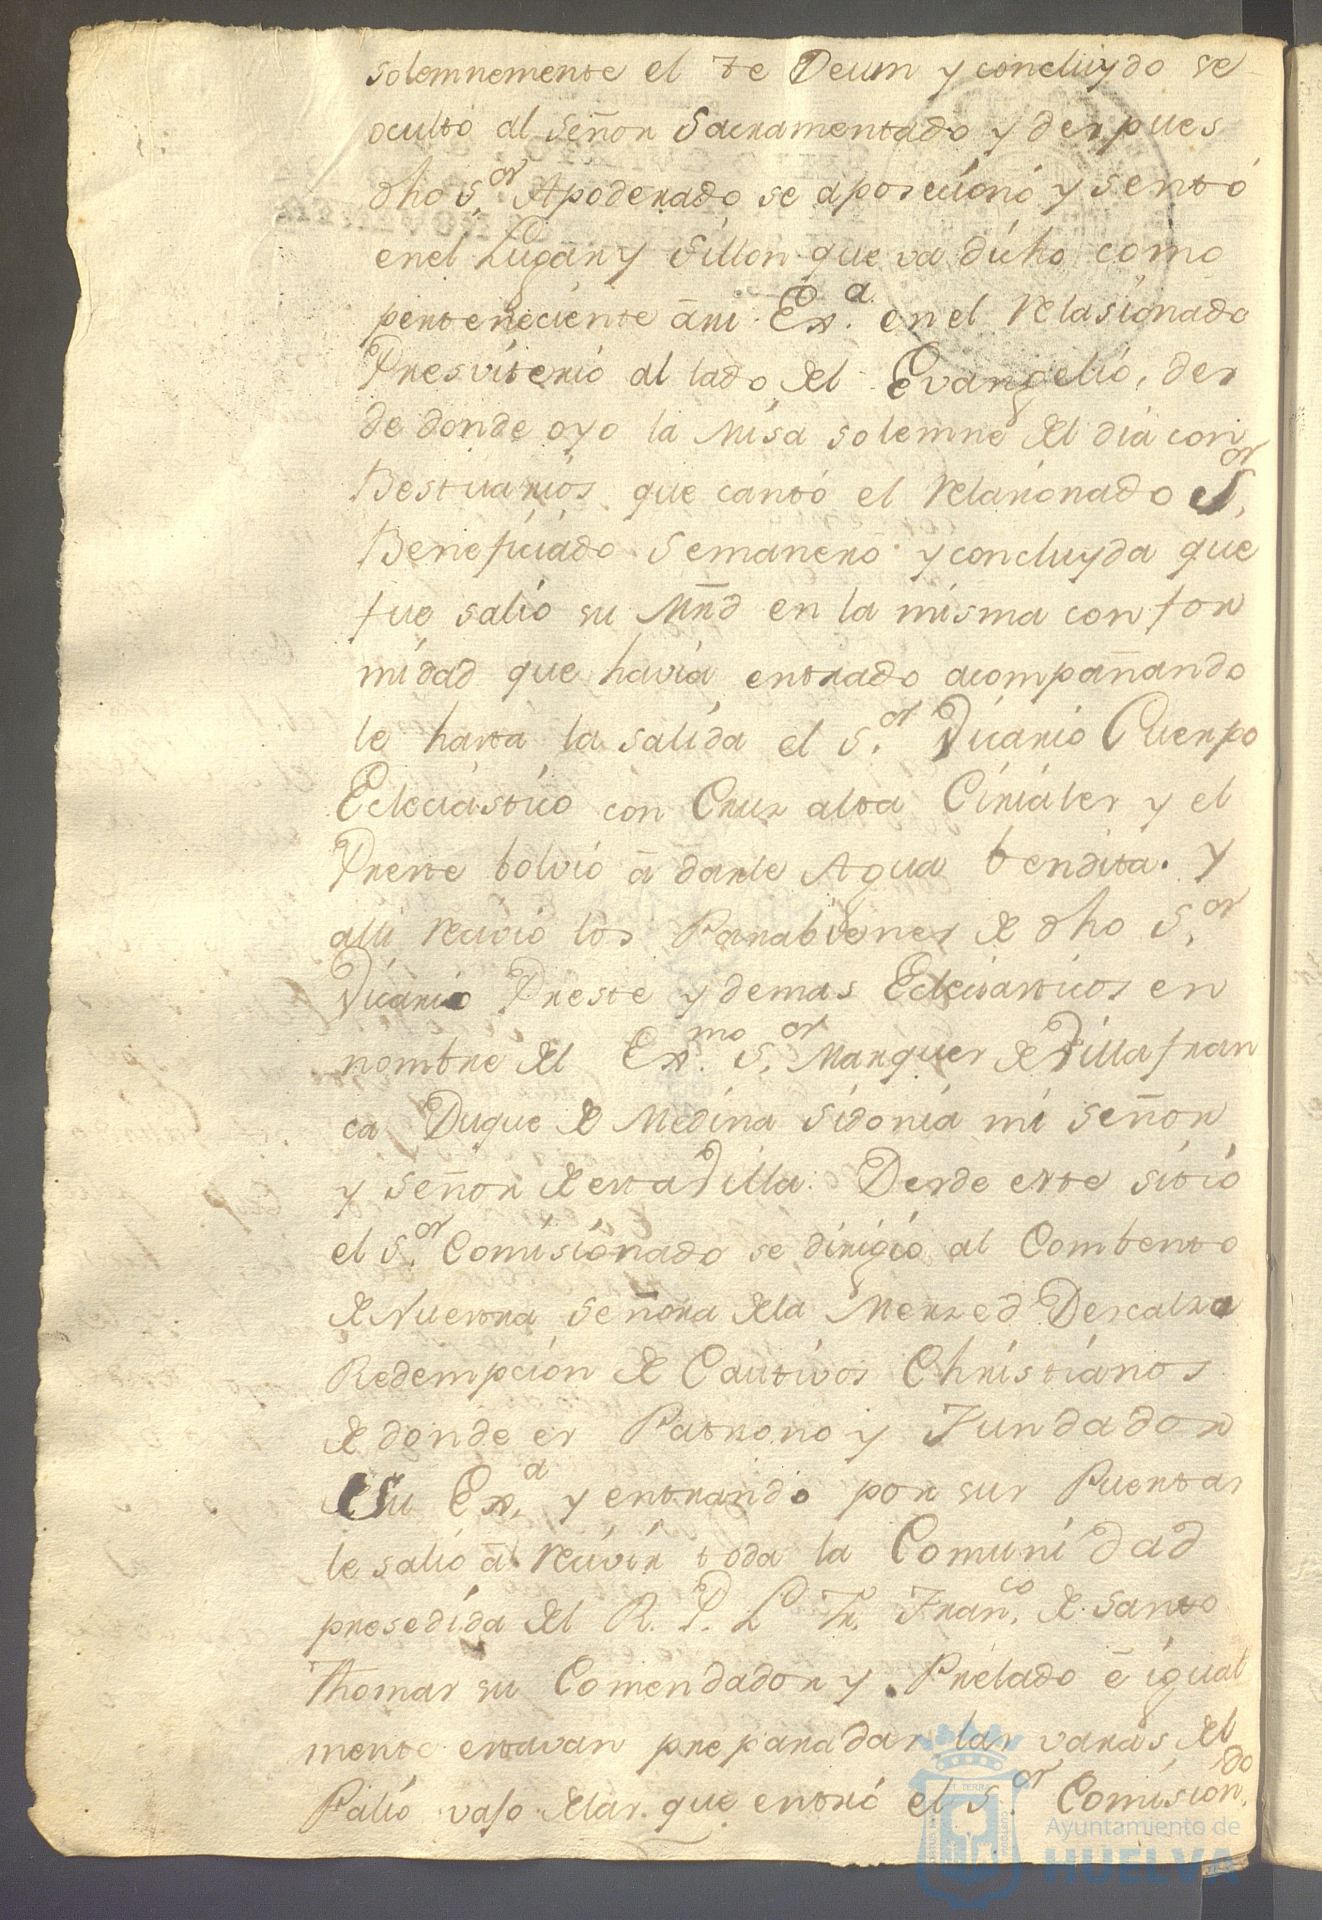 solemnemente el te Deum y concluydo se
ocultó al Señor Sacramentado y despues
dho S.or Apoderado se aposecionó y sentó
en el Lugar y Sillon que va dicho como
perteneciente â mi Ex.a en el relasionado
Presviterio al lado del Evangelio, des
de donde oyo la Misa solemne del dia con
Bestuarios que cantó el relacionado S.or
Beneficiado Semanero y concluyda que
fue salio su Mrd en la misma confor
midad que havia entrado acompañando
le hasta la salida el S.or Vicario Cuerpo
Ecleciastico con Cruz alta Ciriales y el
Preste bolvio â darle Agua bendita. Y
alli recivio los Parabienes de dho S.or
Vicario Preste y demas Ecleciasticos en
nombre del Ex.mo S.or Marques de Villafran
ca Duque de Medina Sidonia mi Señor
y Señor de esta Villa. Desde este sitio
el S.or Comisionado se dirigio al Combento
de Nuestra Señora de la Merzed Descalza
Redempcion de Cautivos Christianos
de donde es Patrono y Fundador
Su Ex.a y entrando por sus Puertas
le salio â recivir toda la Comunidad
presedida del R. P. L. Fr. Fran.co de Santo
Thomas su Comendador y Prelado ê igual
mente estavan preparadas las varas del
Palio vaso delas que entró el S.or Comision.do
Ayuntamiento de
HUELVA